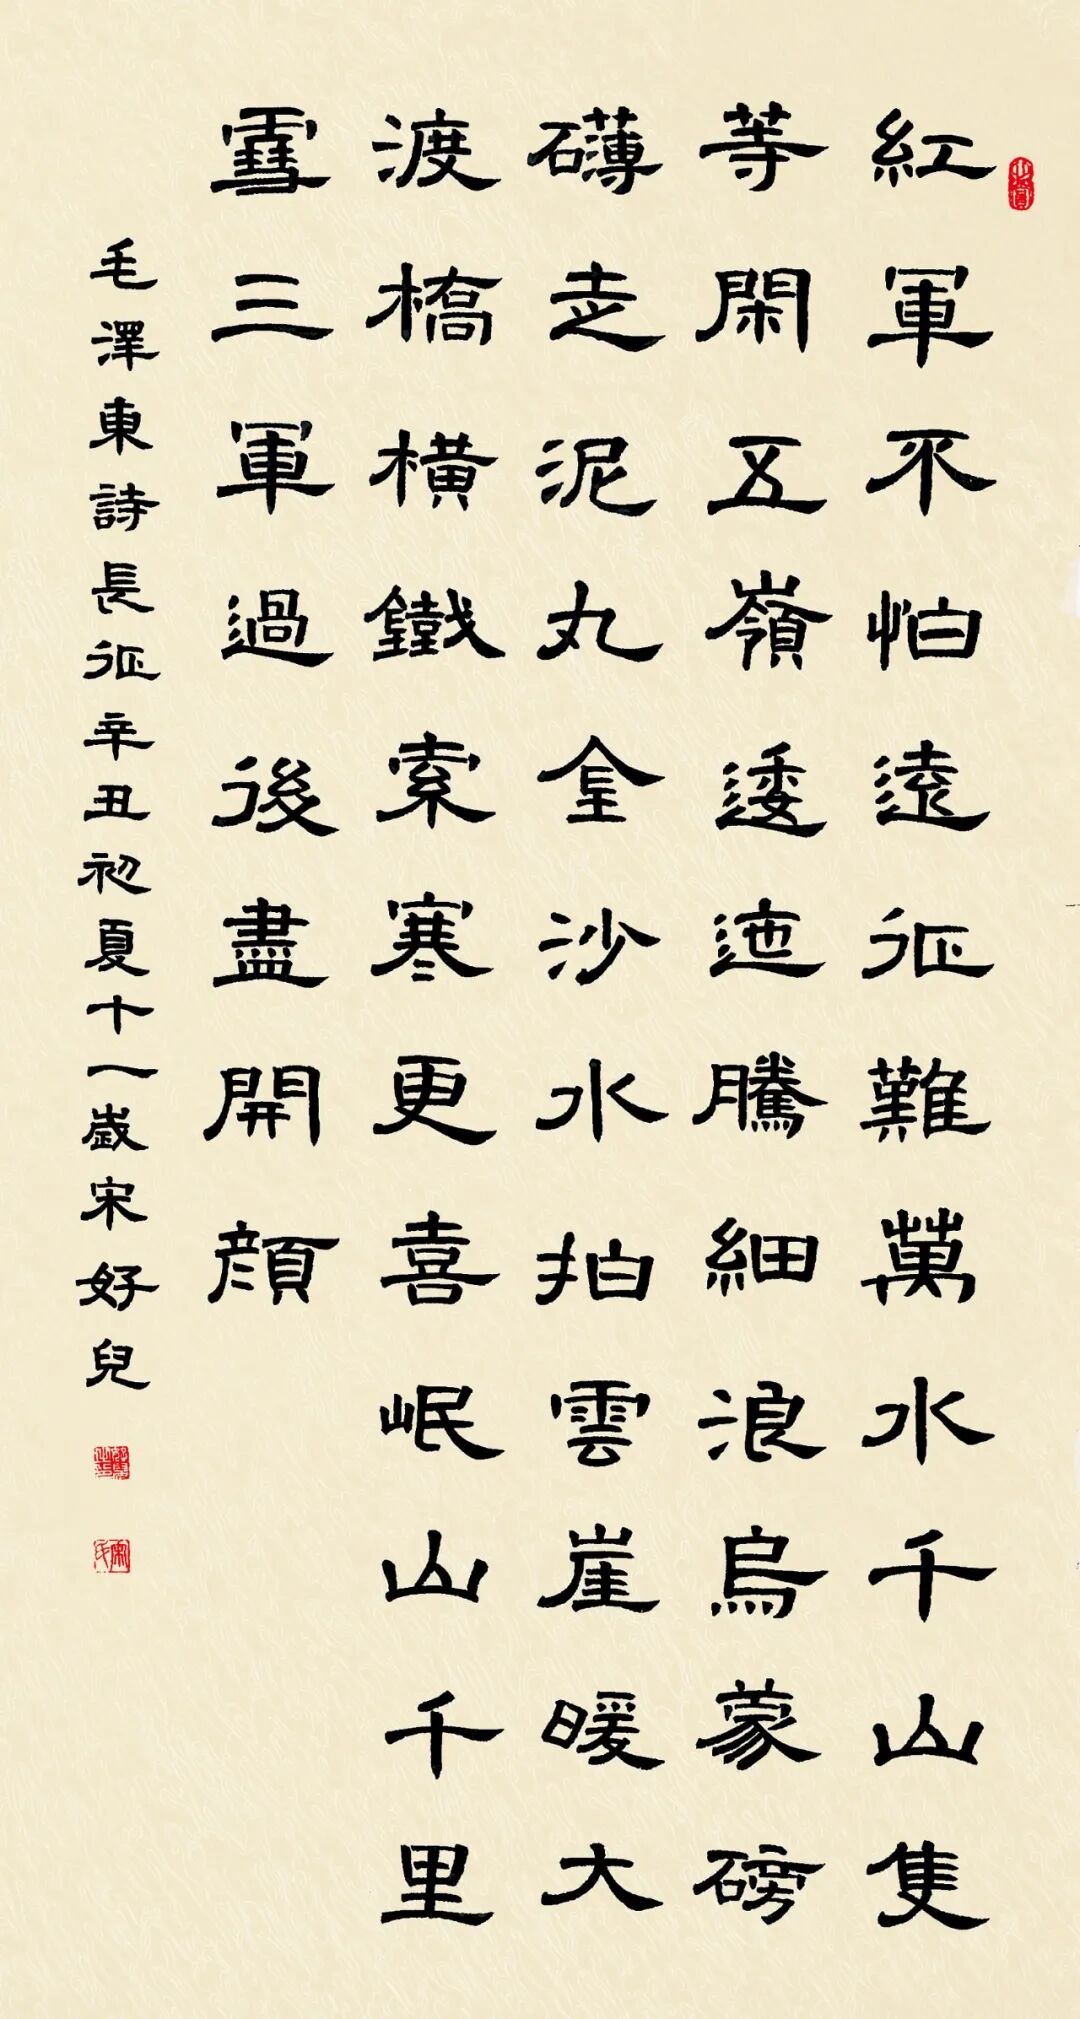 紅軍不怕遠征難萬水千山隻
等閑五嶺逶迤騰細浪烏蒙磅
礴走泥丸金沙水拍雲崖暖大
渡橋橫鐵索寒更喜岷山千里
雪三軍過後盡開顏
毛澤東詩長征辛丑初夏十一歲宋好兒